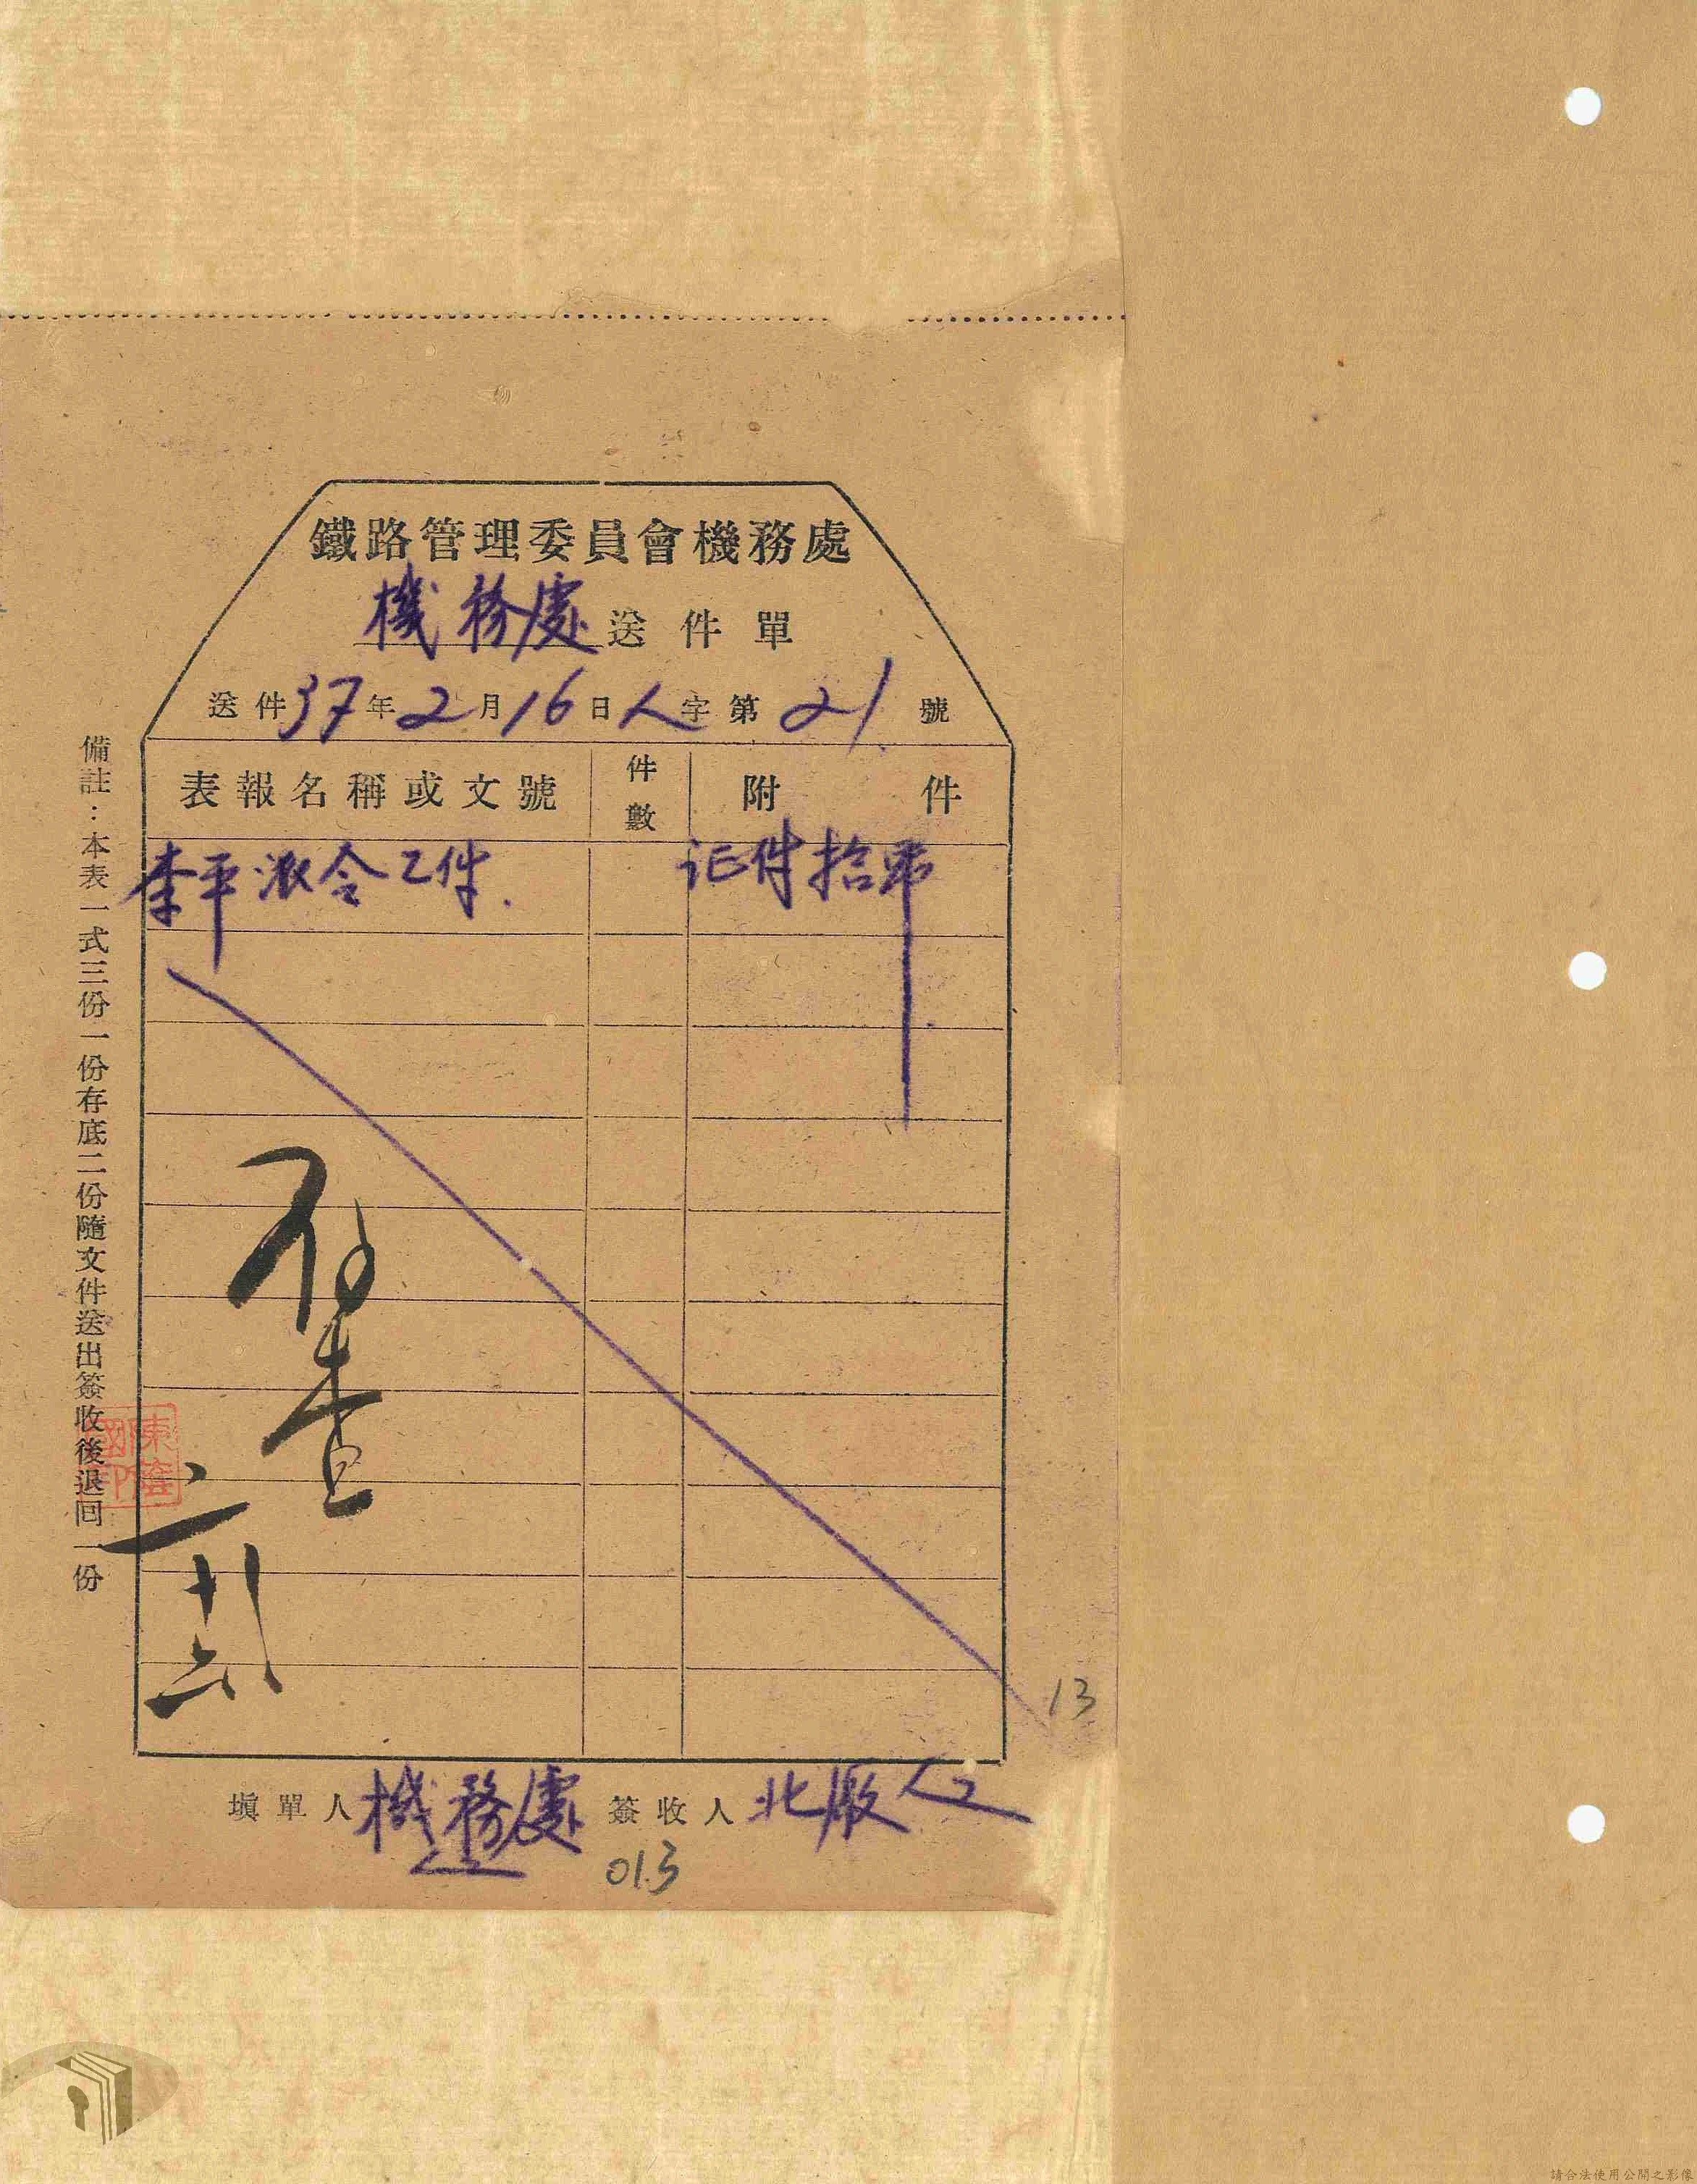 鐵路管理委員會機務處
機務處送件單
送件37年2月16日人字第21號
表報名稱或文號 件數 附件
李平派令乙件. 证件拾
存查
二
十六
填單人機務處 簽收人北廠人
013
13
備註：本表一式三份一份存底二份隨文件送出簽收後退回一份
請合法使用公開之影像